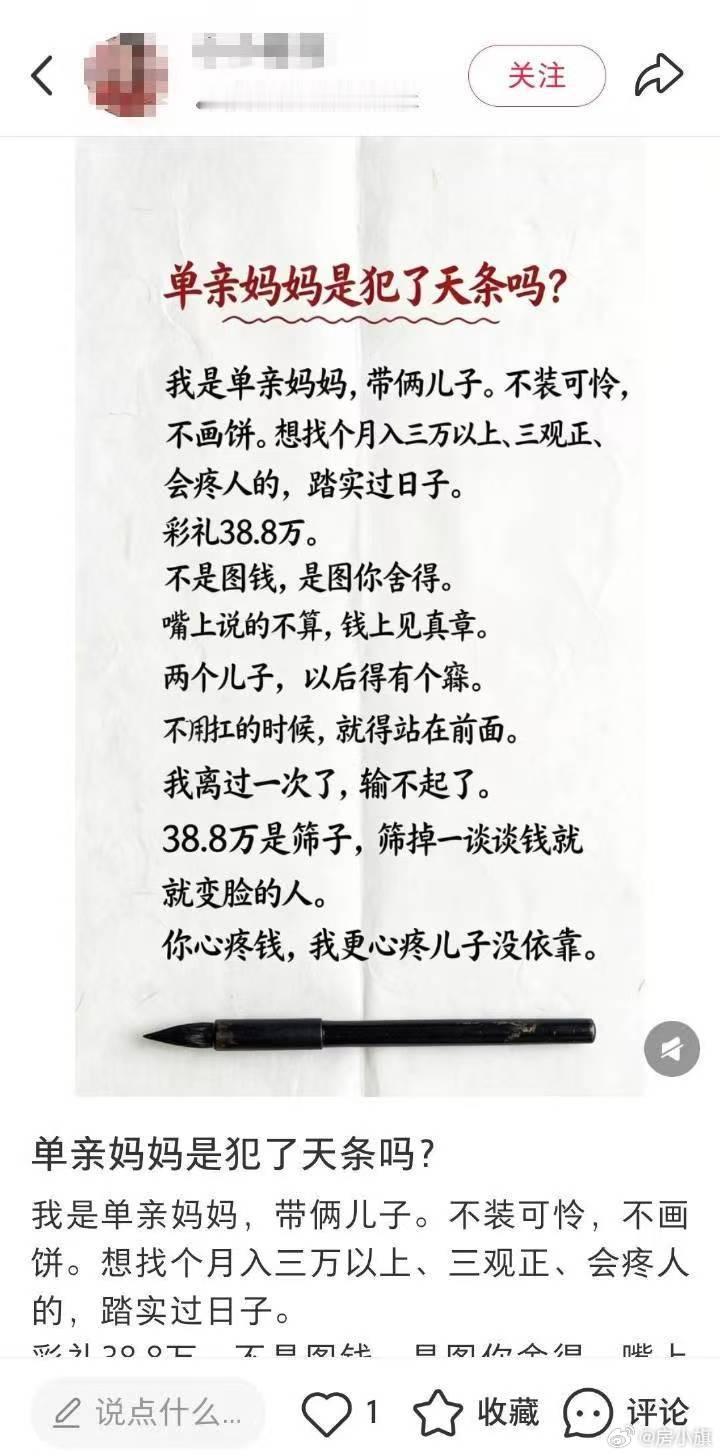 关注
单亲妈妈是犯了天条吗?
我是单亲妈妈,带俩儿子。不装可怜,
不画饼。想找个月入三万以上、三观正、
会疼人的,踏实过日子。
彩礼38.8万。
不是图钱,是图你舍得。
嘴上说的不算,钱上见真章。
两个儿子,以后得有个窝。
不用扛的时候,就得站在前面。
我离过一次了,输不起了。
38.8万是筛子,筛掉一谈谈钱就
就变脸的人。
你心疼钱,我更心疼儿子没依靠。
单亲妈妈是犯了天条吗?
我是单亲妈妈,带俩儿子。不装可怜,不画
饼。想找个月入三万以上、三观正、会疼人
的,踏实过日子。
彩礼38.8万。不是图钱,是图你舍得。嘴上
说点什么...
1
收藏
评论
@房小旗